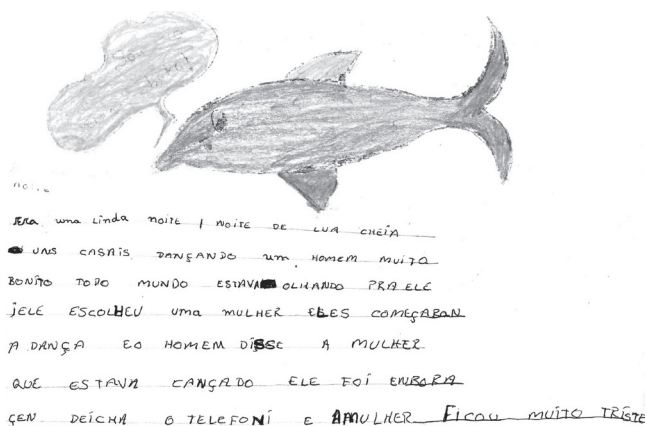 Era uma Linda noite / NOITE DE LUA CHEIA
UNS CASAIS DANÇANDO um HOMEM MUITO
BONITO TODO MUNDO ESTAVA OLHANDO PRA ELE
jELE ESCOLHEU uma MULHER ELES COMEÇARAN
A DANÇA EO HOMEM DISSE A MULHER
QUE ESTAVA CANÇADO ELE FOI ENBORA
ÇEN DEICHA O TELEFONI E AMULHER FICOU MUITO TRISTE